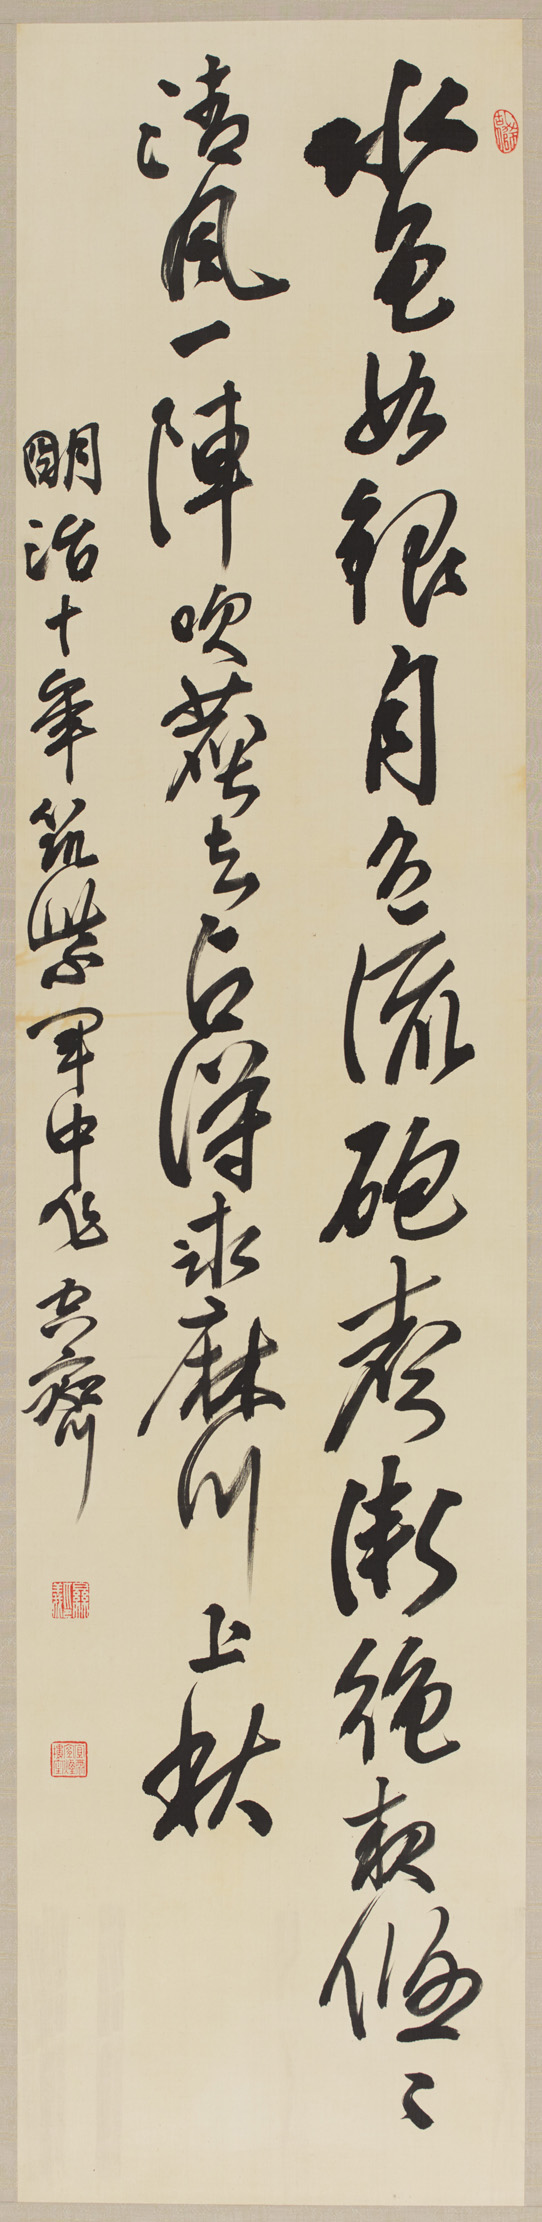 水色如銀月色流砲聲漸絶夜悠〻
清風一陣吹去占得求麻川上秋
明治十年筑紫軍中作 空齋